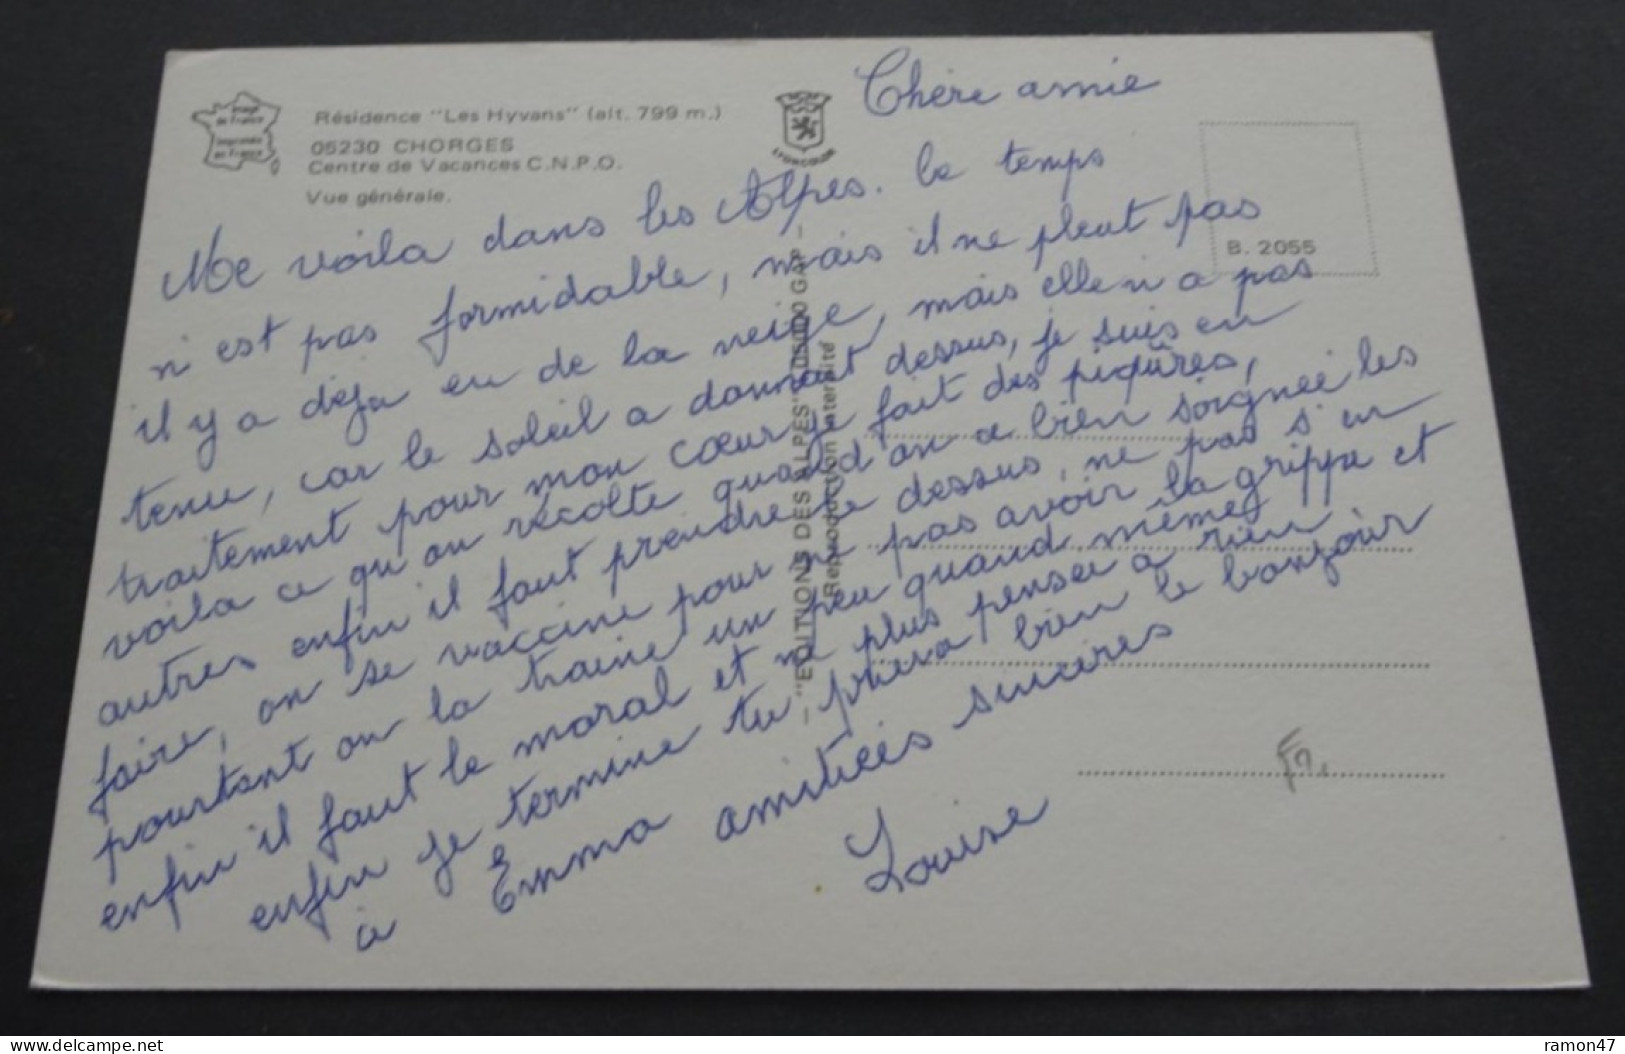 Image de France
Imprimée en France
Résidence "Les Hyvans" (alt. 799 m.)
05230 CHORGES
Centre de Vacances C.N.P.O.
Vue générale.
LYONCOLOR
B. 2055
"EDITIONS DES ALPES" 05000 GAP
Reproduction interdite
Chère amie
Me voila dans les Alpes. le temps
n'est pas formidable, mais il ne pleut pas
il y a déja eu de la neige, mais elle n'a pas
tenu, car le soleil a donnait dessus, je suis en
traitement pour mon cœur je fait des piqûres,
voila ce qu'on récolte quand on a bien soignée les
autres enfin il faut prendre le dessus, ne pas s'en
faire, on se vaccine pour ne pas avoir la grippe et
pourtant on la traine un peu quand même
enfin il faut le moral et ne plus pensée a rien
enfin je termine tu diras bien le bonjour
à Emma amitiées sincères
Louise
www.delcampe.net
ramon47